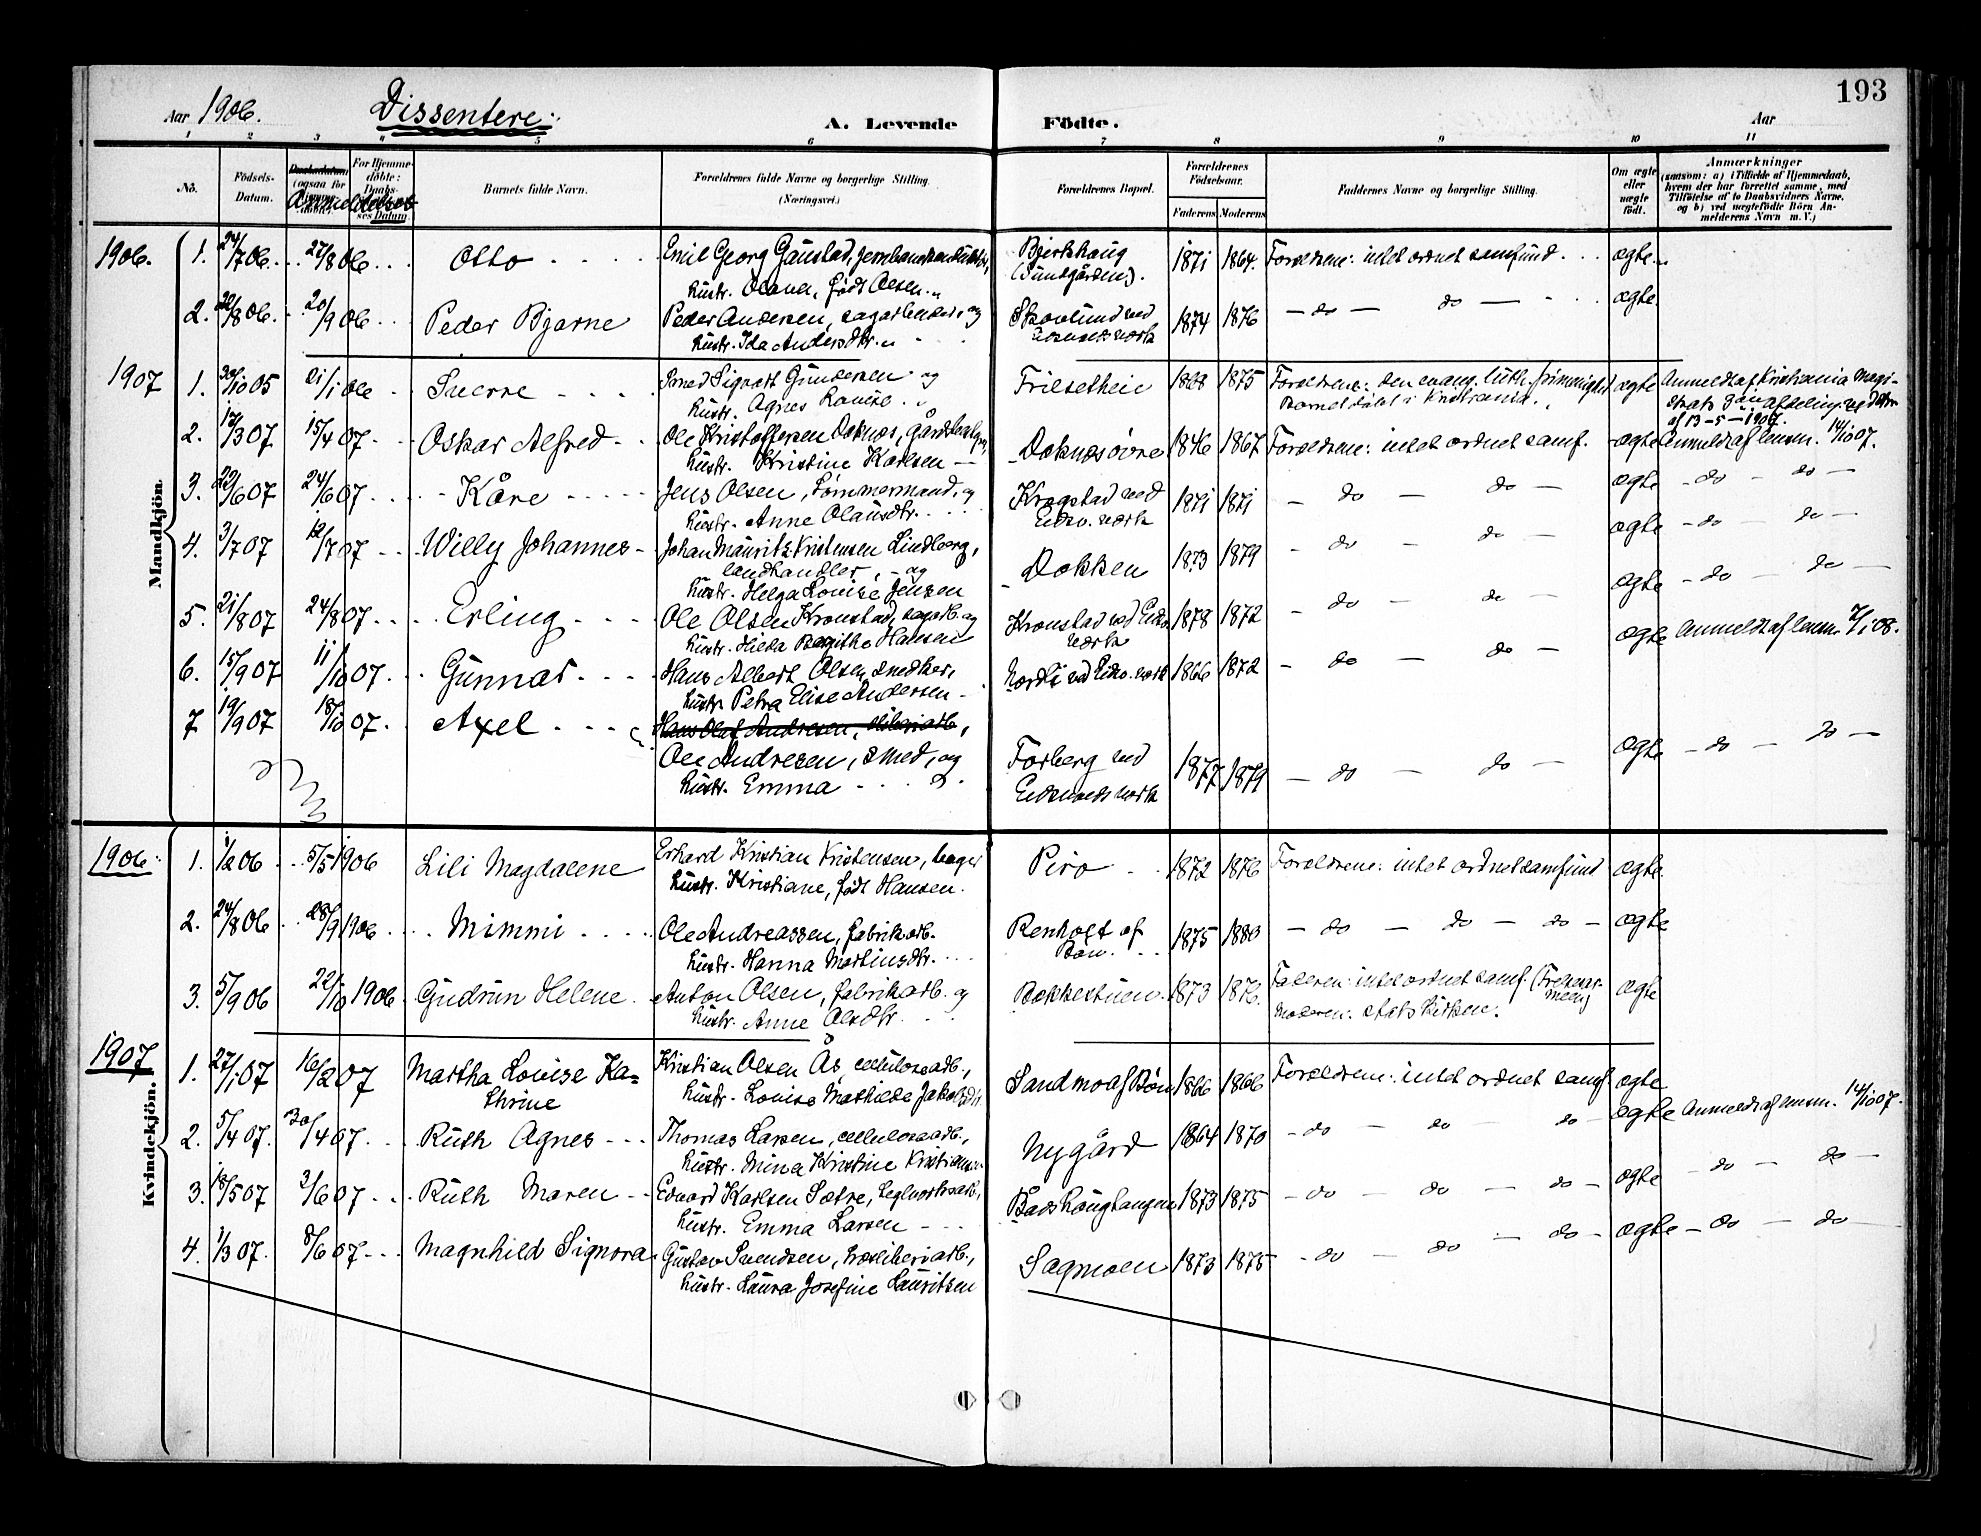 193
Aar 1906. Dissentere: A. Levende Födte. Aar
1 2 3 4 5 6 7 8 9 10 11
Nô. Födsels-Datum. Daabsdatum (ogsaa for Anmeldelses For Hjemme-döbte: Daabs- Datum. Barnets fulde Navn. Forældrenes fulde Navne og borgerlige Stilling. (Næringsvei.) Forældrenes Bopæl. Forældrenes Födselsaar. Faderens Moderens Faddernes Navne og borgerlige Stilling. Om ægte eller uægte födt. Anmærkninger (saasom: a) i Tilfælde af Hjemmedaab, hvem der har forrettet samme, med Tilföielse af to Daabsvidners Navne, og b) ved uægtefödte Börn Anmelderens Navn m. V.)
Mandkjön.
1906. 1. 24/7 06. 27/8 06 Otto Emil Georg Gaustad, Bjerkhaug 1871 1864. Forældrene: intet ordnet samfund. ægte
hustr. født Olsen (Sundgården).
2. 22/8 06. 20/9 06 Peder Bjarne Peder Andersen, sagarbeider, og Skovlund ved 1874 1876 – do – do – ægte
hustr. Ida Andersdtr. Eidsvolds værk
1907 1. 30/10 05 21/1 06 Sverre Smed Sigvart Gundersen og Trilsetheie 1868 1875 Forældrene: den evang. luth. frimenighed ægte Anmeldt af Kristiania Magi-
hustr. Agnes Lovise Barnet døbt i Kristiania. strats afdeling
af 13-5-1907.
2. 12/3 07 15/4 07 Oskar Alfred Ole Kristoffersen Doknæs, Doknæs øvre 1846 1867 Forældrene: intet ordnet samf. ægte Anmeldt af lensm. 14/10 07.
hustr. Kristine Karlsen
3. 22/6 07 24/6 07 Kåre Jens Olsen, tømmermand, og Krogstad ved 1871 1871 – do – do – ægte – do – do –
hustr. Anne Olausdtr. Eidsv. værk
4. 3/7 07 12/7 07 Willy Johannes Johan Mauritz Kristensen Lindberg, Dokken 1873 1879 – do – do – ægte – do – do –
landhandler, og
hustr. Helga Lovise Jensen
5. 21/8 07 24/8 07 Erling Ole Olsen Kronstad, sagarb. og Kronstad ved Eidsv. 1878 1872 – do – do – ægte – do – do –
hustr. Hilda Bergithe Hansen værk
6. 15/9 07 11/10 07 Gunnar Hans Albert Olsen, snedker, Nordli ved Eidsv. værk 1866 1872 – do – do – ægte Anmeldt af lensm. 7/1 08.
hustr. Petra Elise Andersen
7 19/9 07 18/10 07 Axel Hans Olaf Andresen,
Ole Andresen, smed, og Forberg ved 1877 1879 – do – do – ægte – do – do –
hustr. Emma Eidsvolds værk
Kvindekjön.
1906. 1. 1/2 06 5/5 1906 Lili Magdalene Erhard Kristian Kristensen, bager Piro 1872 1876 Forældrene: intet ordnet samfund ægte
hustr. Kristiane, født Hansen.
2. 24/8 06 28/9 1906 Mimmi Ole Andreassen, fabrikarb. Renholt af 1875 1880 – do – do – do – ægte
hustr. Hanna Martinsdtr. Bøn.
3. 5/9 06 22/10 1906 Gudrun Helene Anton Olsen, fabrikarb. og Bekkestuen 1873 1876. Faderen: intet ordnet samf. (Frelsesarmeen) ægte
hustr. Anne Olsdtr. Moderen: statskirken.
1907 1. 27/1 07 16/2 07 Martha Lovise Ka- Kristian Olsen Ås, cellulosearb., Sandmo af Bøn 1866 1866 Forældrene: intet ordnet samf. ægte
thrine hustr. Lovise Mathilde
2. 5/4 07. 30/4 07 Ruth Agnes Thomas Larsen, cellulosearb., Nygård 1864 1870 – do – do – do – ægte Anmeldt af lensm. 14/10 07.
hustr. Mina Kristine Kristiansen
3. 18/5 07 2/6 07 Ruth Maren Edvard Karlsen Sætre, teglverksarb., Bådshaugtangen 1873 1875 – do – do – do – ægte – do – do –
hustr. Emma Larsen
4. 1/3 07. 8/6 07 Magnhild Signora Gustav Svendsen, træsliberiarb., Sagmoen 1873 1875 – do – do – do – ægte – do – do –
hustr. Laura Josefine Lauritsen